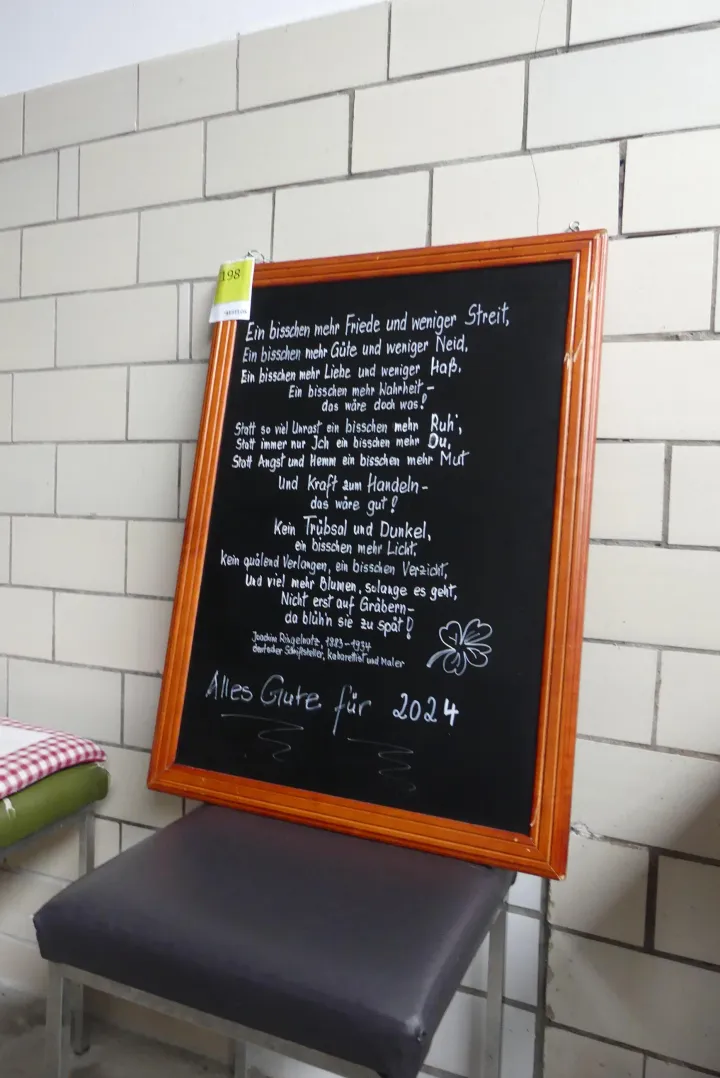 198
Ein bisschen mehr Friede und weniger Streit,
Ein bisschen mehr Güte und weniger Neid,
Ein bisschen mehr Liebe und weniger Haß,
Ein bisschen mehr Wahrheit –
das wäre doch was!
Statt so viel Unrast ein bisschen mehr Ruh',
Statt immer nur Ich ein bisschen mehr Du,
Statt Angst und Hemm ein bisschen mehr Mut
Und Kraft zum Handeln –
das wäre gut!
Kein Trübsal und Dunkel,
ein bisschen mehr Licht,
Kein quälend Verlangen, ein bisschen Verzicht,
Und viel mehr Blumen, solange es geht,
Nicht erst auf Gräbern –
da blüh'n sie zu spät!
Joachim Ringelnatz, 1883-1934
deutscher Schriftsteller, Kabarettist und Maler
Alles Gute für 2024